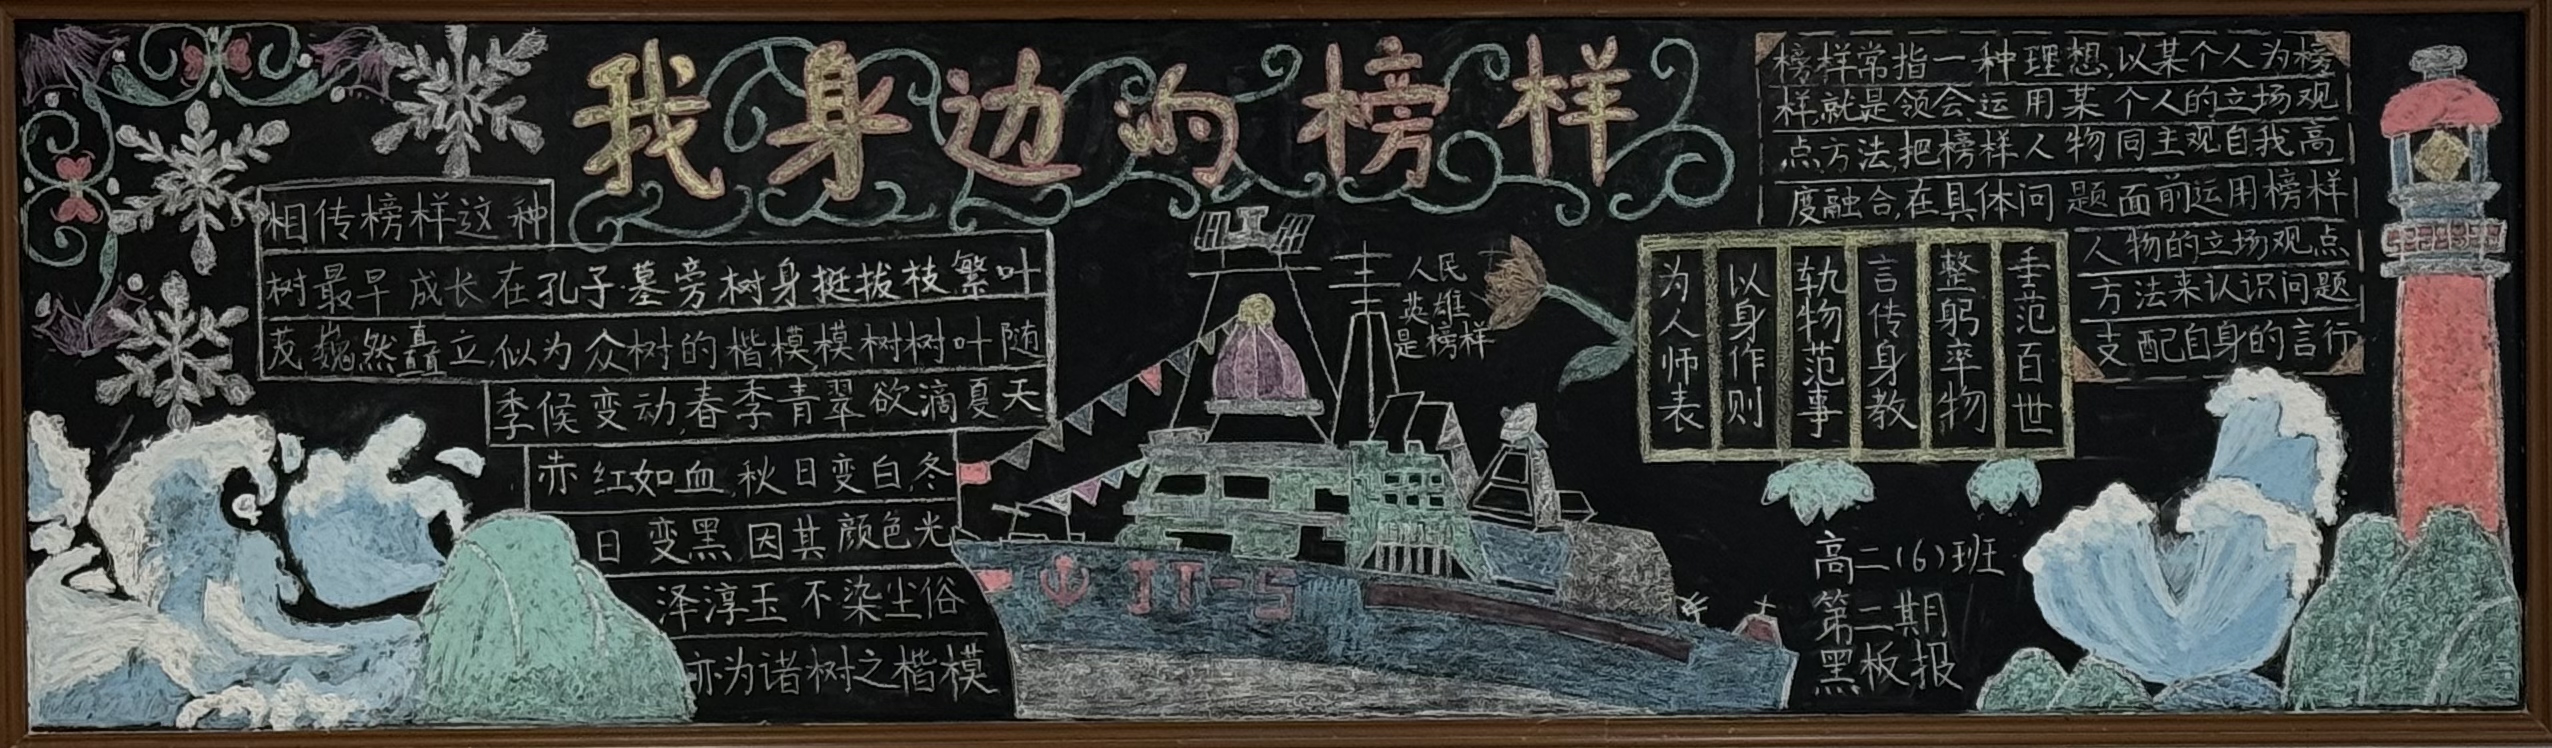 我身边的榜样
相传榜样这种
树最早成长在孔子墓旁树身挺拔枝繁叶
茂巍然矗立,似为众树的楷模,模树树叶随
季候变动,春季青翠欲滴夏天
赤红如血,秋日变白,冬
日变黑,因其颜色光
泽淳玉不染尘俗
亦为诸树之楷模
人民
英雄
是榜样
JT-5
榜样常指一种理想,以某个人为榜
样,就是领会,运用某个人的立场观
点方法,把榜样人物同主观自我高
度融合,在具体问题面前运用榜样
人物的立场观点
方法来认识问题
支配自身的言行
为人师表
以身作则
轨物范事
言传身教
整躬率物
垂范百世
高二(6)班
第二期
黑板报